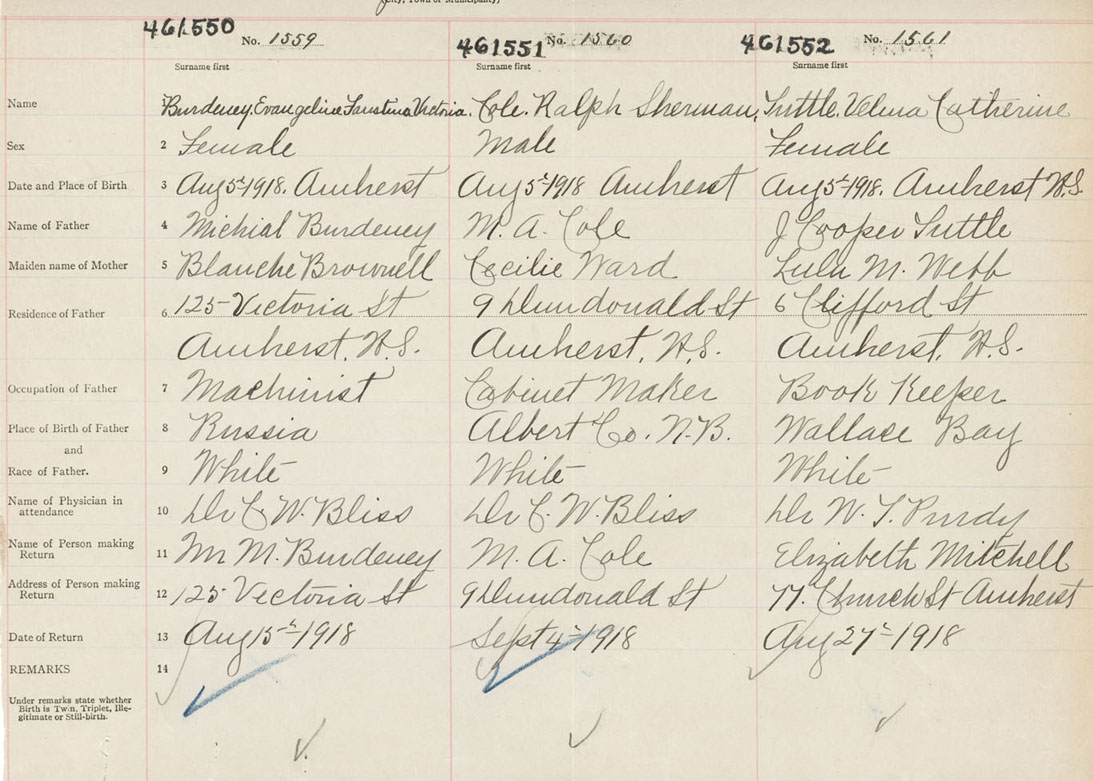 (City, Town or Municipality)
461550 No. 1559 461551 No. 1560 461552 No. 1561
Surname first Surname first Surname first
Name 1 Burdeney, Evangeline Faustina Victoria. Cole. Ralph Sherman, Tuttle. Velma Catherine
Sex 2 Female Male Female
Date and Place of Birth 3 Aug 5th 1918. Amherst Aug 5th 1918 Amherst Aug 5th 1918. Amherst N.S.
Name of Father 4 Michial Burdeney M. A. Cole J Cooper Tuttle
Maiden name of Mother 5 Blanche Brownell Cecilie Ward Lula M. Webb
Residence of Father 6 125 Victoria St 9 Dundonald St 6 Clifford St
Amherst, N.S. Amherst, N.S. Amherst, N.S.
Occupation of Father 7 Machinist Cabinet Maker Book Keeper
Place of Birth of Father 8 Russia Albert Co. N.B. Wallace Bay
and
Race of Father. 9 White White White
Name of Physician in
attendance 10 Dr C. W. Bliss Dr C. W. Bliss Dr W. T. Purdy
Name of Person making
Return 11 Mr M. Burdeney M. A. Cole Elizabeth Mitchell
Address of Person making
Return 12 125 Victoria St 9 Dundonald St 77. Church St Amherst
Date of Return 13 Aug 15th 1918 Sept 4th 1918 Aug 27th 1918
REMARKS 14
Under remarks state whether
Birth is Twin, Triplet, Ille-
gitimate or Still-birth.